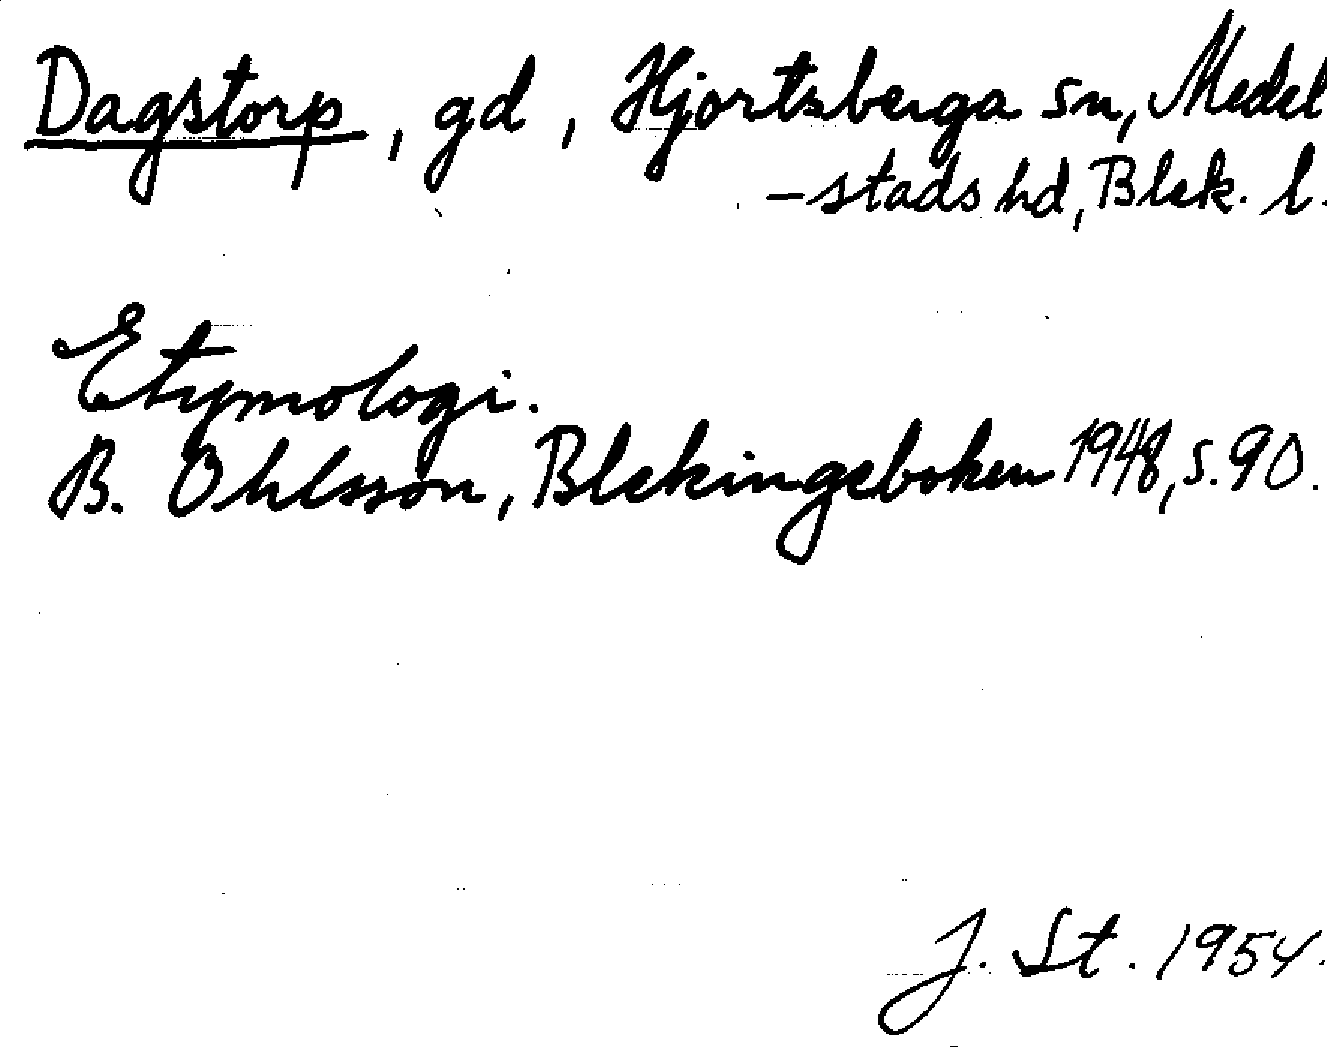 Dagstorp, gd, Hjortsberga sn, Medel
-stads hd, Blek. l.
Etymologi.
B. Ohlsson, Blekingeboken 1948, s. 90.
J. St. 1954.